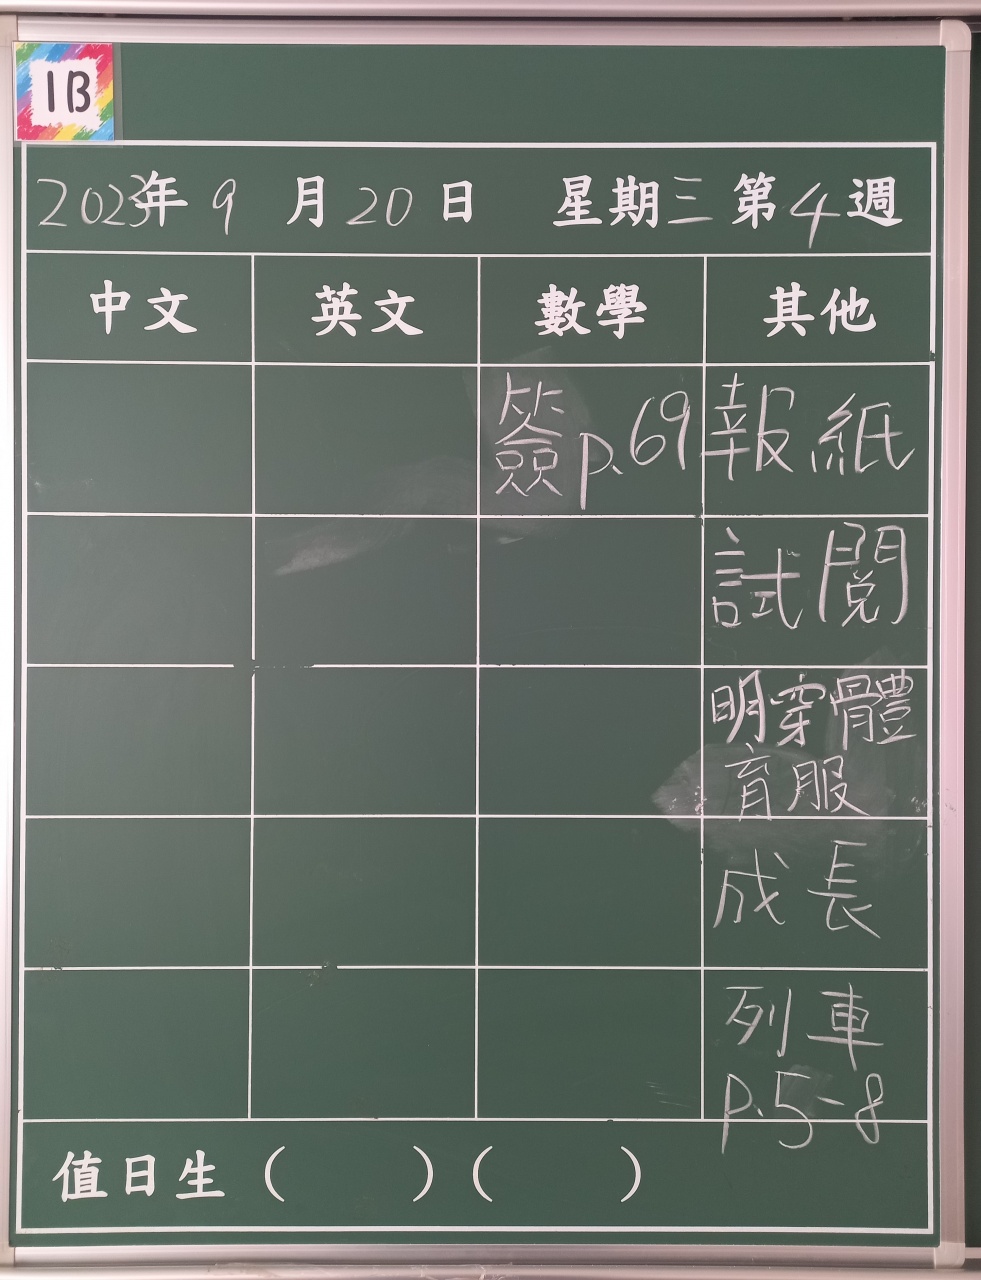 1B
2023年9月20日 星期三第4週
中文 英文 數學 其他
簽p.69 報紙
試閱
明穿體
育服
成長
列車
p.5-8
值日生 ( ) ( )